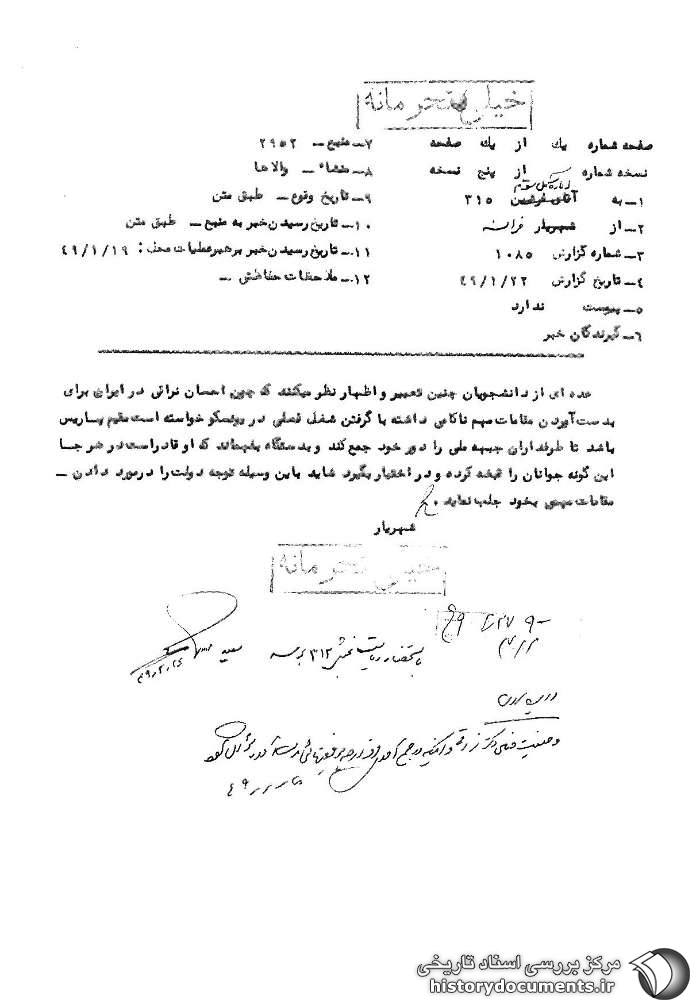 خیلی محرمانه
صفحه شماره یک از یک صفحه
نسخه شماره از پنج نسخه
۱ـ به آقای فرشین ۳۱۵ اداره کل سوم
۲ـ از شهریار فرانسه
۳ـ شماره گزارش ۱۰۸۵
۴ـ تاریخ گزارش ۴۹/۱/۲۲
۵ـ پیوست ندارد
۶ـ گیرندگان خبر
۷ـ منبع ـ ۲۹۵۲
۸ـ منشاء ـ والاها
۹ـ تاریخ وقوع ـ طبق متن
۱۰ـ تاریخ رسیدن خبر به منبع ـ طبق متن
۱۱ـ تاریخ رسیدن خبر برهبر عملیات محل: ۴۹/۱/۱۹
۱۲ـ ملاحظات حفاظتی ـ
عده ای از دانشجویان چنین تعبیر و اظهار نظر میکنند که چون احسان نراقی در ایران برای
بدست آوردن مقامات مهم ناکامی داشته با گرفتن شغل فعلی در یونسکو خواسته است مقیم پاریس
باشد تا طرفداران جبهه ملی را دور خود جمع کند و بدستگاه بفهماند که او قادر است در هر جا
این گونه جوانان را قبضه کرده و در اختیار بگیرد شاید باین وسیله توجه دولت را در مورد دادن ـ
مقامات مهمی بخود جلب نماید.
شهریار
خیلی محرمانه
باستحضار ریاست بخش ۳۱۲ برسد
سعید
۴۹